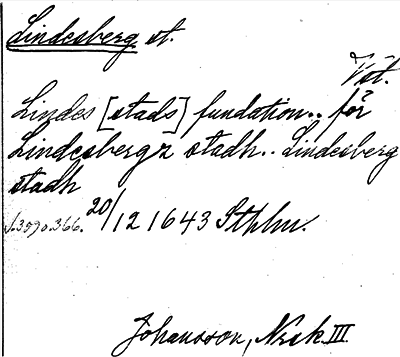 Lindesberg st.
Vst.
Lindes [stads] fundation.. för
Lindesbergz stadh.. Lindesberg
stadh
20/12 1643 Sthlm.
Johansson, Nrsk III.